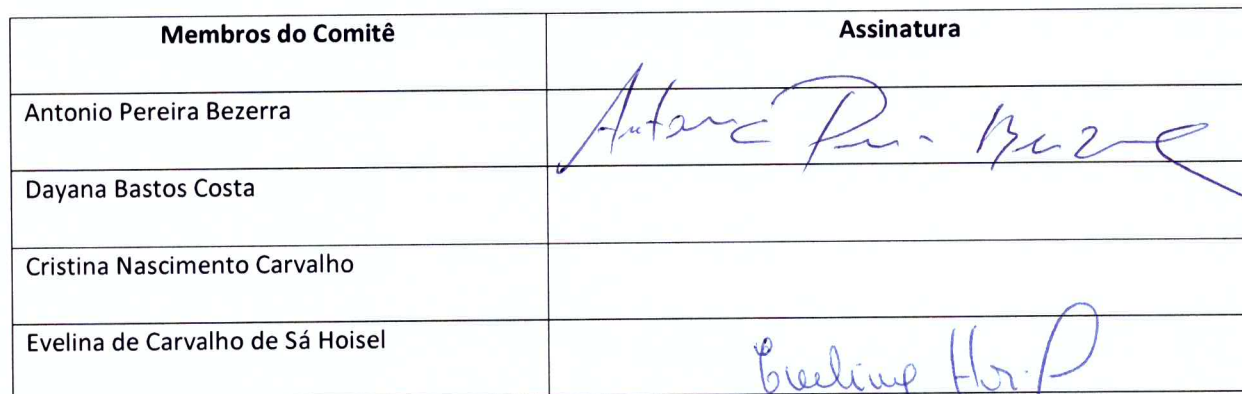 Membros do Comitê Assinatura
Antonio Pereira Bezerra
Dayana Bastos Costa
Cristina Nascimento Carvalho
Evelina de Carvalho de Sá Hoisel